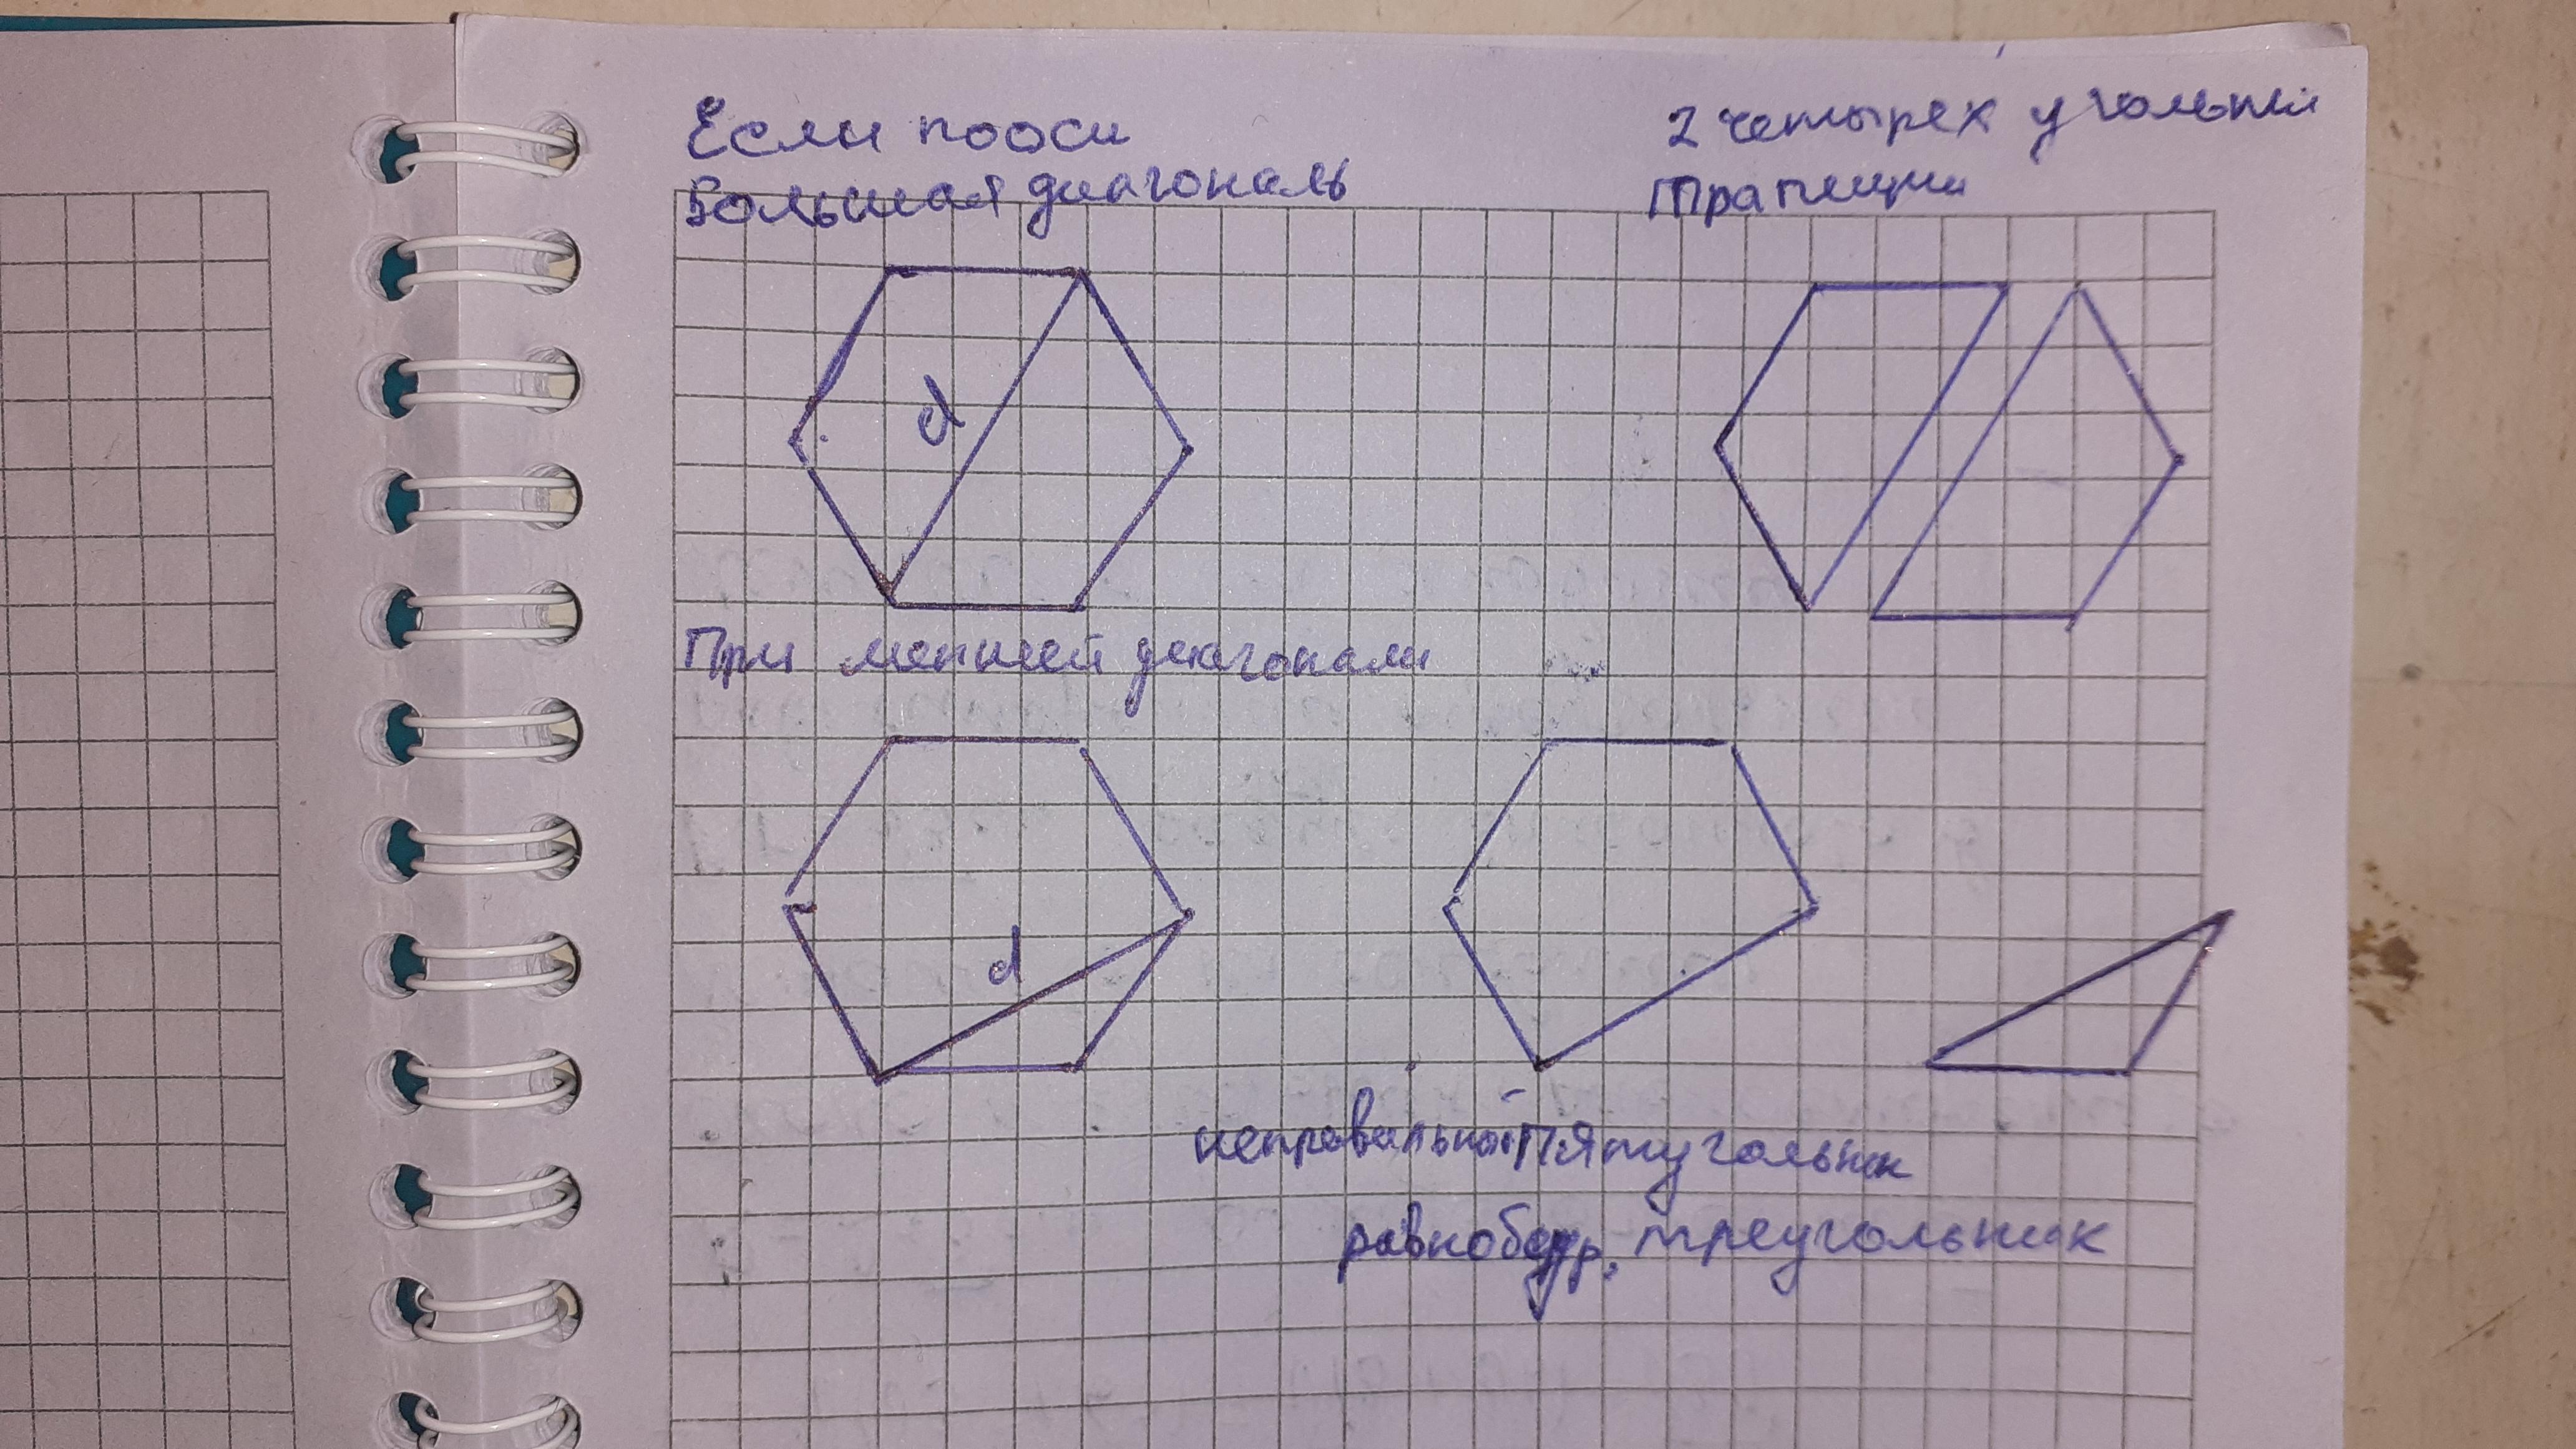 Если пооси
Большая диагональ
2 четырех угольни
трапеции
d
При меншей диагонали
d
неправильной пятиугольник
равнобедр, треугольник